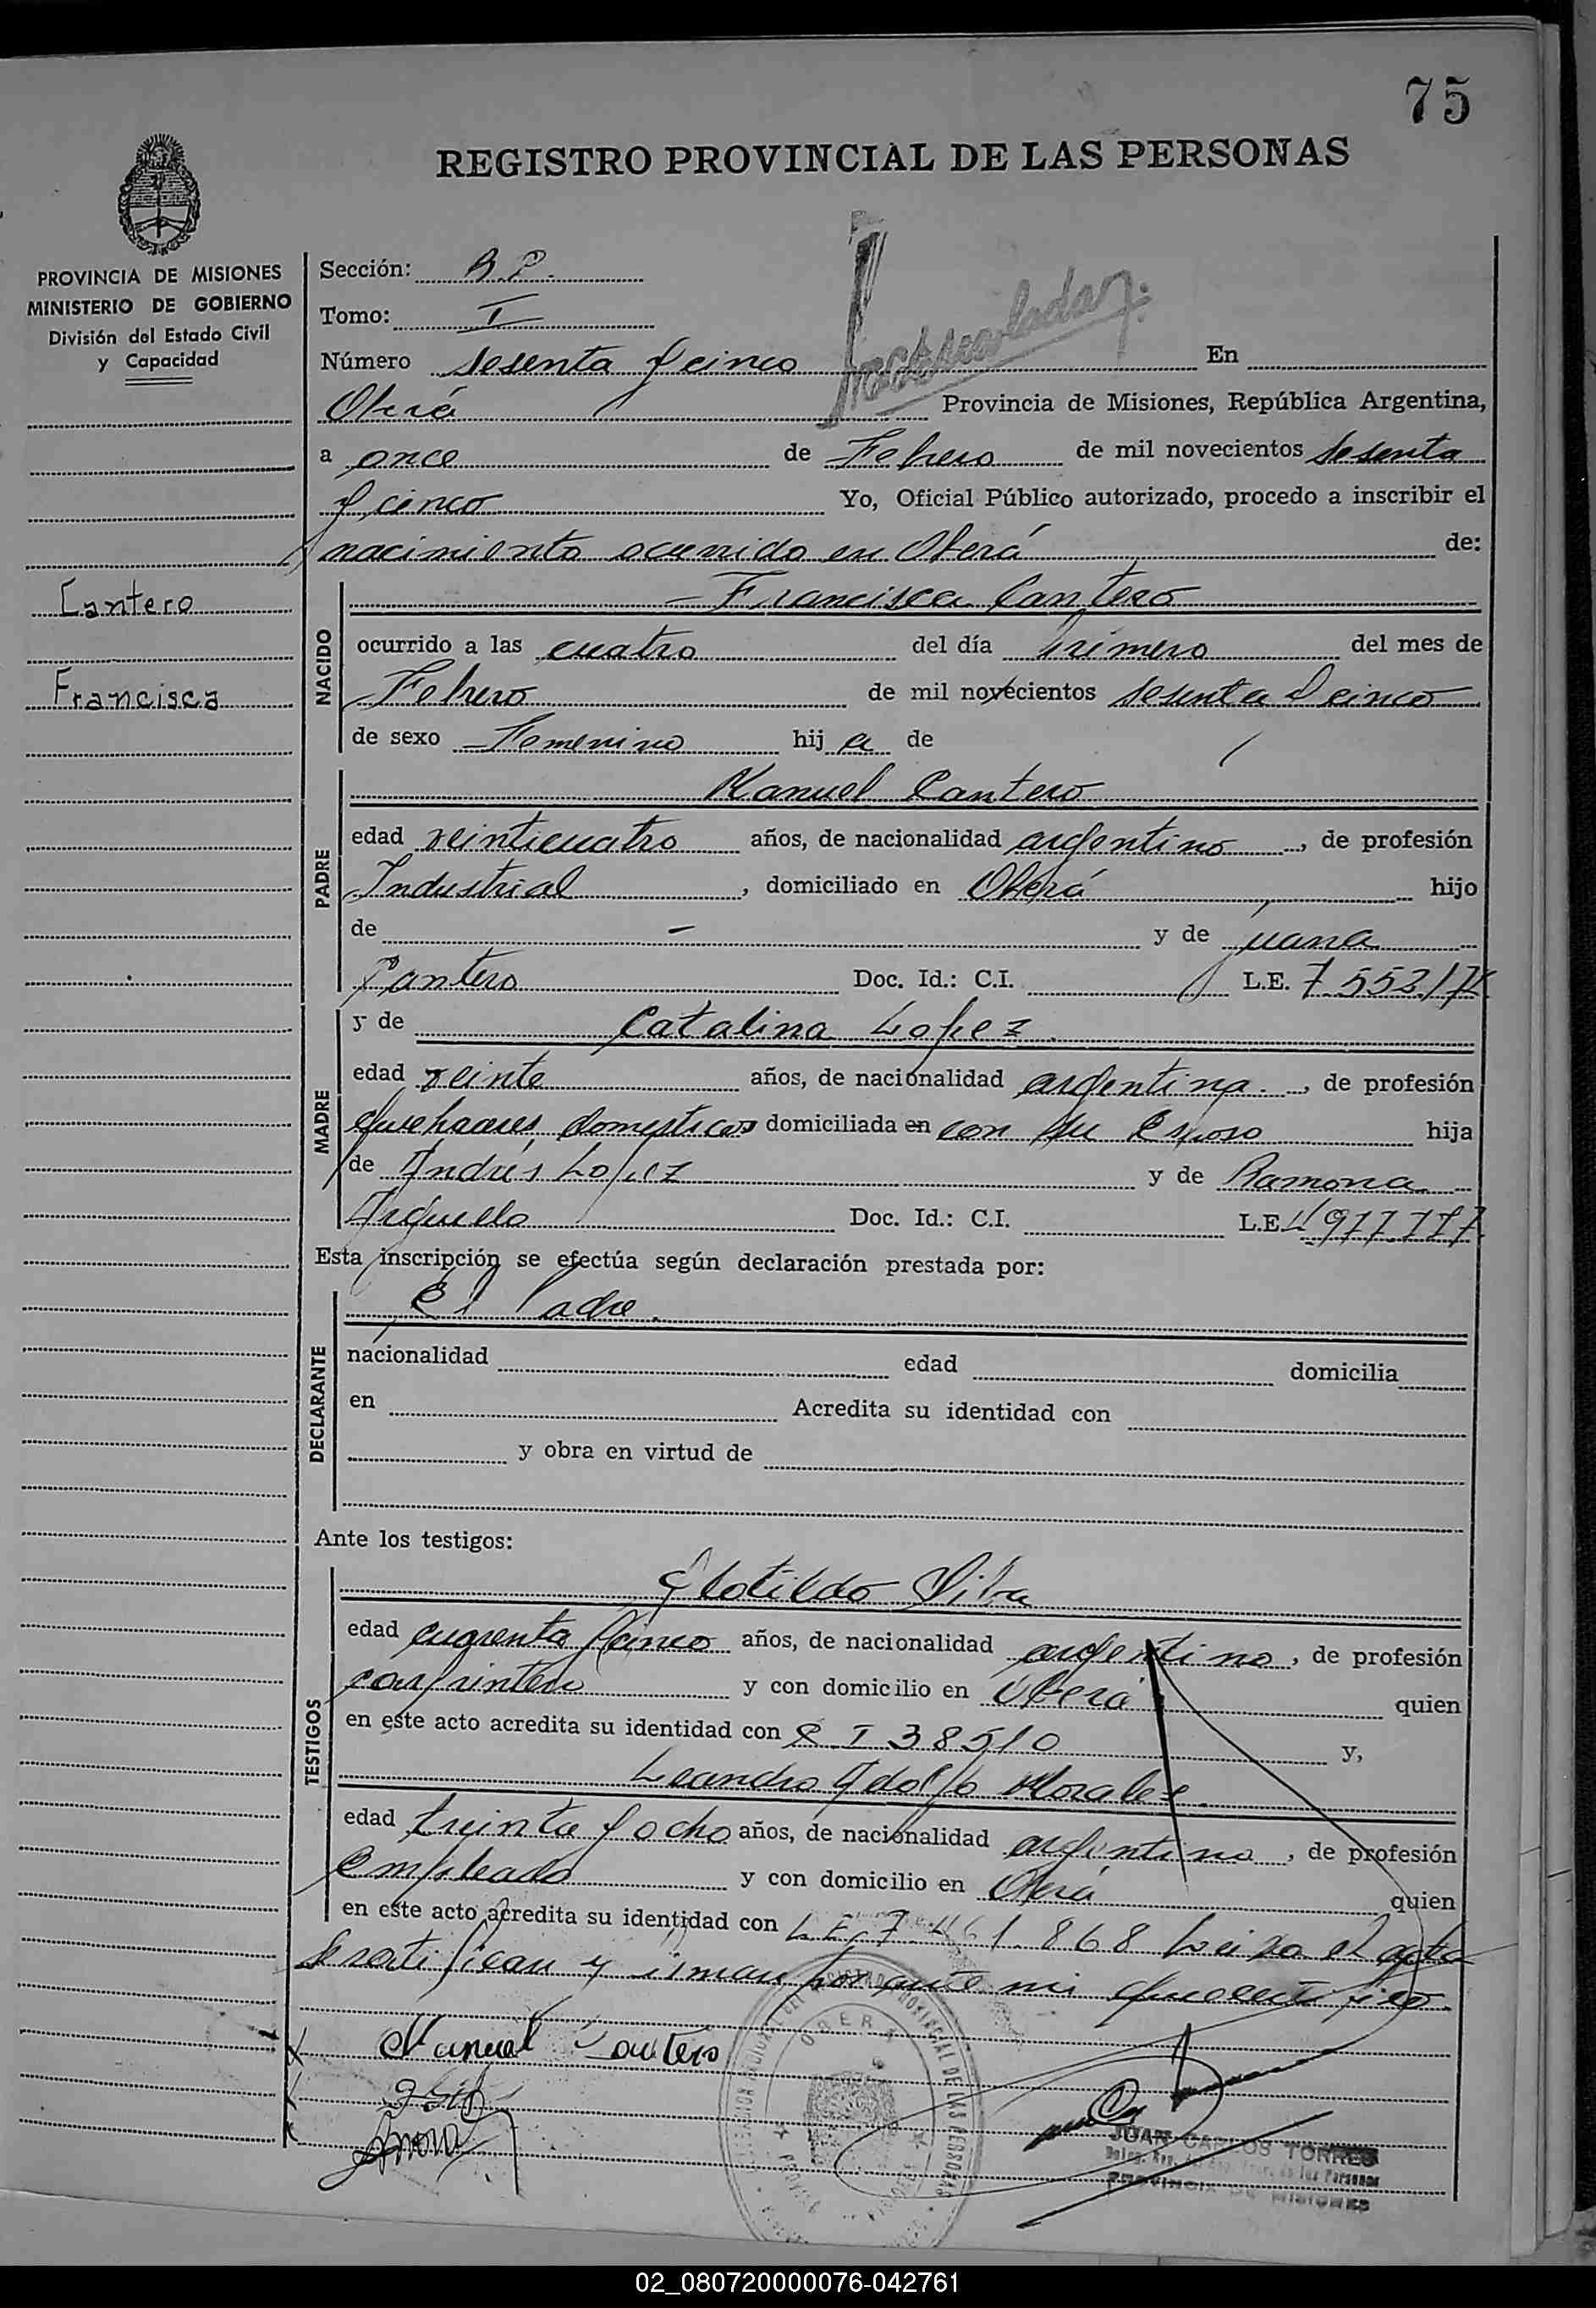 75
REGISTRO PROVINCIAL DE LAS PERSONAS
PROVINCIA DE MISIONES
MINISTERIO DE GOBIERNO
División del Estado Civil
y Capacidad
Cantero
Francisca
Sección: B.P.
Tomo: I
Número sesenta y cinco En
Oberá Provincia de Misiones, República Argentina,
a once de Febrero de mil novecientos sesenta
y cinco Yo, Oficial Público autorizado, procedo a inscribir el
nacimiento ocurrido en Oberá de:
NACIDO
- Francisca Cantero
ocurrido a las cuatro del día primero del mes de
Febrero de mil novecientos sesenta y cinco
de sexo Femenino hij a de
PADRE
Manuel Cantero
edad veinticuatro años, de nacionalidad argentino, de profesión
Industrial, domiciliado en Oberá hijo
de - y de Juana
Cantero Doc. Id.: C.I. L.E. 7.552.17
MADRE
y de Catalina Lopez
edad veinte años, de nacionalidad argentina, de profesión
quehaceres domesticos domiciliada en con su Esposo hija
de Andrés Lopez y de Ramona
Arguello Doc. Id.: C.I. L.E. 4.977.777
Esta inscripción se efectúa según declaración prestada por:
DECLARANTE
El Padre.
nacionalidad edad domicilia
en Acredita su identidad con
y obra en virtud de
Ante los testigos:
TESTIGOS
Clotildo Silva
edad cuarenta y cinco años, de nacionalidad argentino, de profesión
carpintero y con domicilio en Oberá quien
en este acto acredita su identidad con C I 38510 y,
Leandro Adolfo Morales
edad treinta y ocho años, de nacionalidad argentino, de profesión
Empleado y con domicilio en Oberá quien
en este acto acredita su identidad con L.E. 7.461.868 Leida el acta
se ratifican y firman por ante mi que certifico.
Manuel Cantero
OBERA
JUAN CARLOS TORRES
PROVINCIA DE MISIONES
02_080720000076-042761